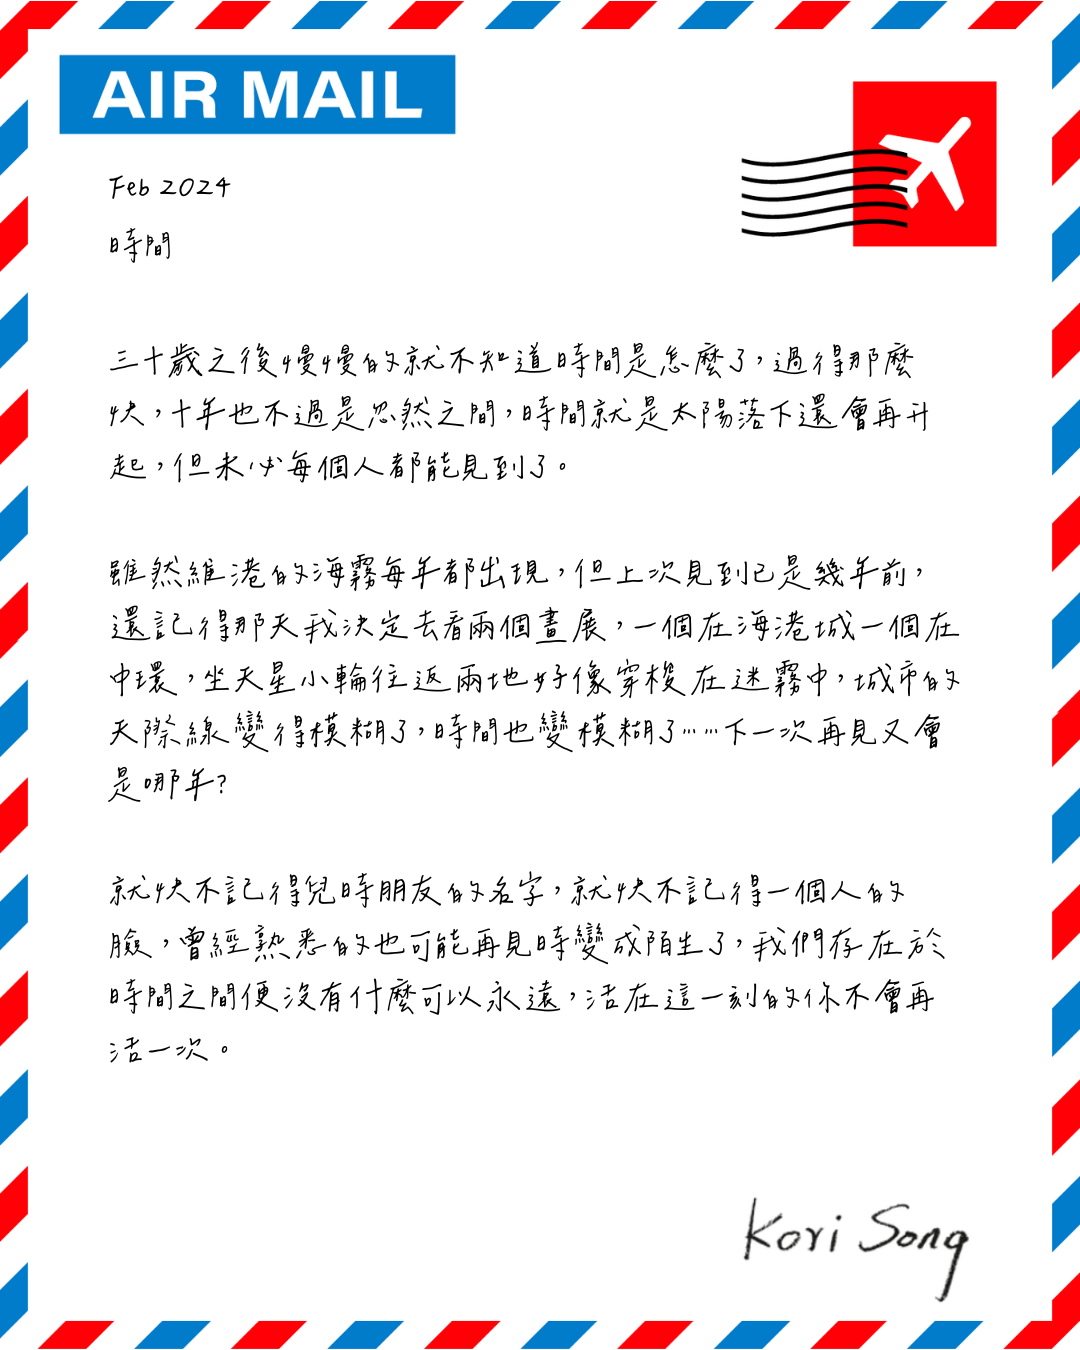 AIR MAIL
Feb 2024
時間
三十歲之後慢慢的就不知道時間是怎麼了，過得那麼
快，十年也不過是忽然之間，時間就是太陽落下還會再升
起，但未必每個人都能見到了。
雖然維港的海霧每年都出現，但上次見到已是幾年前，
還記得那天我決定去看兩個畫展，一個在海港城一個在
中環，坐天星小輪往返兩地好像穿梭在迷霧中，城市的
天際線變得模糊了，時間也變模糊了……下一次再見又會
是哪年?
就快不記得兒時朋友的名字，就快不記得一個人的
臉，曾經熟悉的也可能再見時變成陌生了，我們存在於
時間之間便沒有什麼可以永遠，活在這一刻的你不會再
活一次。
Kori Song